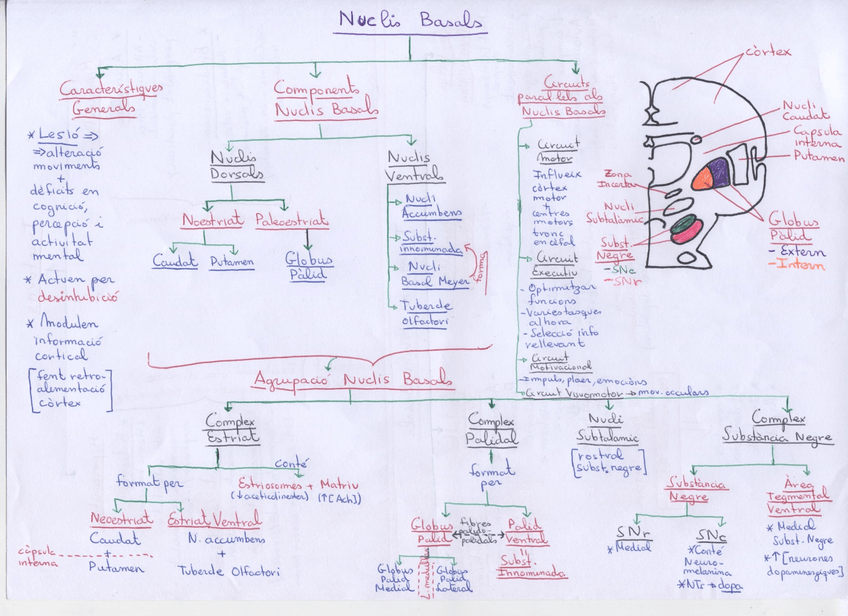 Nuclis Basals
Característiques
Generals
* Lesió ⇒
⇒ alteració
moviments
+
dèficits en
cognició,
percepció i
activitat
mental
* Actuen per
desinhibició
* Modulen
informació
cortical
[fent retro-
alimentació
còrtex]
Components
Nuclis Basals
Nuclis
Dorsals
Neoestriat
Paleoestriat
Caudat
Putamen
Globus
Pàl·lid
Nuclis
Ventrals
Nucli
Accumbens
Subst.
innominada
Nucli
Basal Meyer
forma
Tubercle
olfactori
Circuits
paral·lels als
Nuclis Basals
Circuit
motor
Influeix
còrtex
motor
+
centres
motors
tronc
encèfal
Circuit
Executiu
- Optimitzar
funcions
- Varies tasques
alhora
- Selecció info
rellevant
Circuit
Motivacional
- Impuls, plaer, emocions
Circuit Visromotor → mov. occulars
còrtex
Nucli
Caudat
Capsula
interna
Putamen
Zona
Incerta
Nucli
Subtalàmic
Subst.
Negre
- SNc
- SNr
Globus
Pàl·lid
- Extern
- Intern
Agrupació Nuclis Basals
Complex
Estriat
format per
conté
Estriosomes + Matriu
(↓ acetilcolinester) (↑[Ach])
Neoestriat
Estriat Ventral
Caudat
+
Putamen
càpsula
interna
N. accumbens
+
Tubercle Olfactori
Complex
Pal·lidal
format
per
Globus
Pàl·lid
fibres
pàl·lido-
pal·lidals
Pàl·lid
Ventral
Subst.
Innominada
Globus
Pàl·lid
Medial
Globus
Pàl·lid
Lateral
Nucli
Subtalàmic
[rostral
subst. negre]
Complex
Substància Negre
Substància
Negre
SNr
* Medial
SNc
* Conté
Neuro-
melanina
* NTs → dopa
Àrea
Tegmental
Ventral
* Medial
Subst. Negre
* ↑ [neurones
dopaminèrgiques]